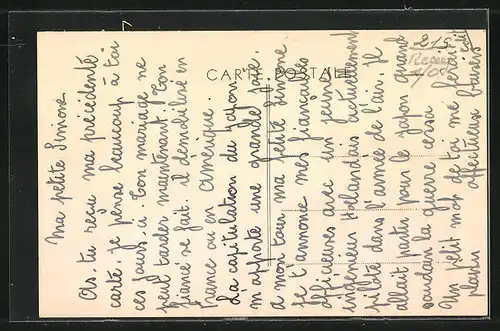 CARTE POSTALE
Ma petite Simone
As. tu reçu ma précédente
carte. je pense beaucoup à toi
ces jours. ci. Ton mariage ne
peut tarder maintenant. Ton
fiancé se fait. il démobilisé en
France ou en Amérique.
La capitulation du Japon
m'apporte une grande joie.
à mon tour ma petite Simone
je t'annonce mes fiançailles
officieuses avec un jeune
ingénieur Hollandais actuellement
pilote dans l'armée de l'air. Il
allait partir pour le Japon quand
soudain la guerre cessa
Un petit mot de toi me ferait
plaisir affectueux baisers